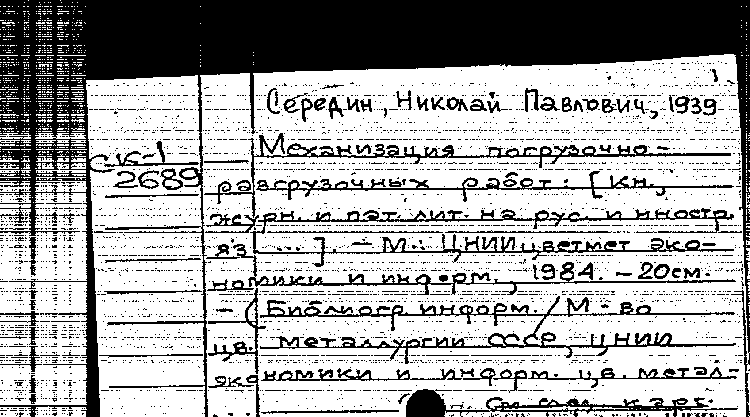 1
Середин, Николай Павлович, 1939
Механизация погрузочно-
СК-1
2689
разгрузочных работ: [Кн.,
журн. и пат. лит. на рус. и иностр.
яз. ...]. - М.: ЦНИИцветмет эко-
номики и информ., 1984. - 20 см.
- (Библиогр. информ. / М-во
цв. металлургии СССР, ЦНИИ
экономики и информ. цв. метал-
См. след. карт.